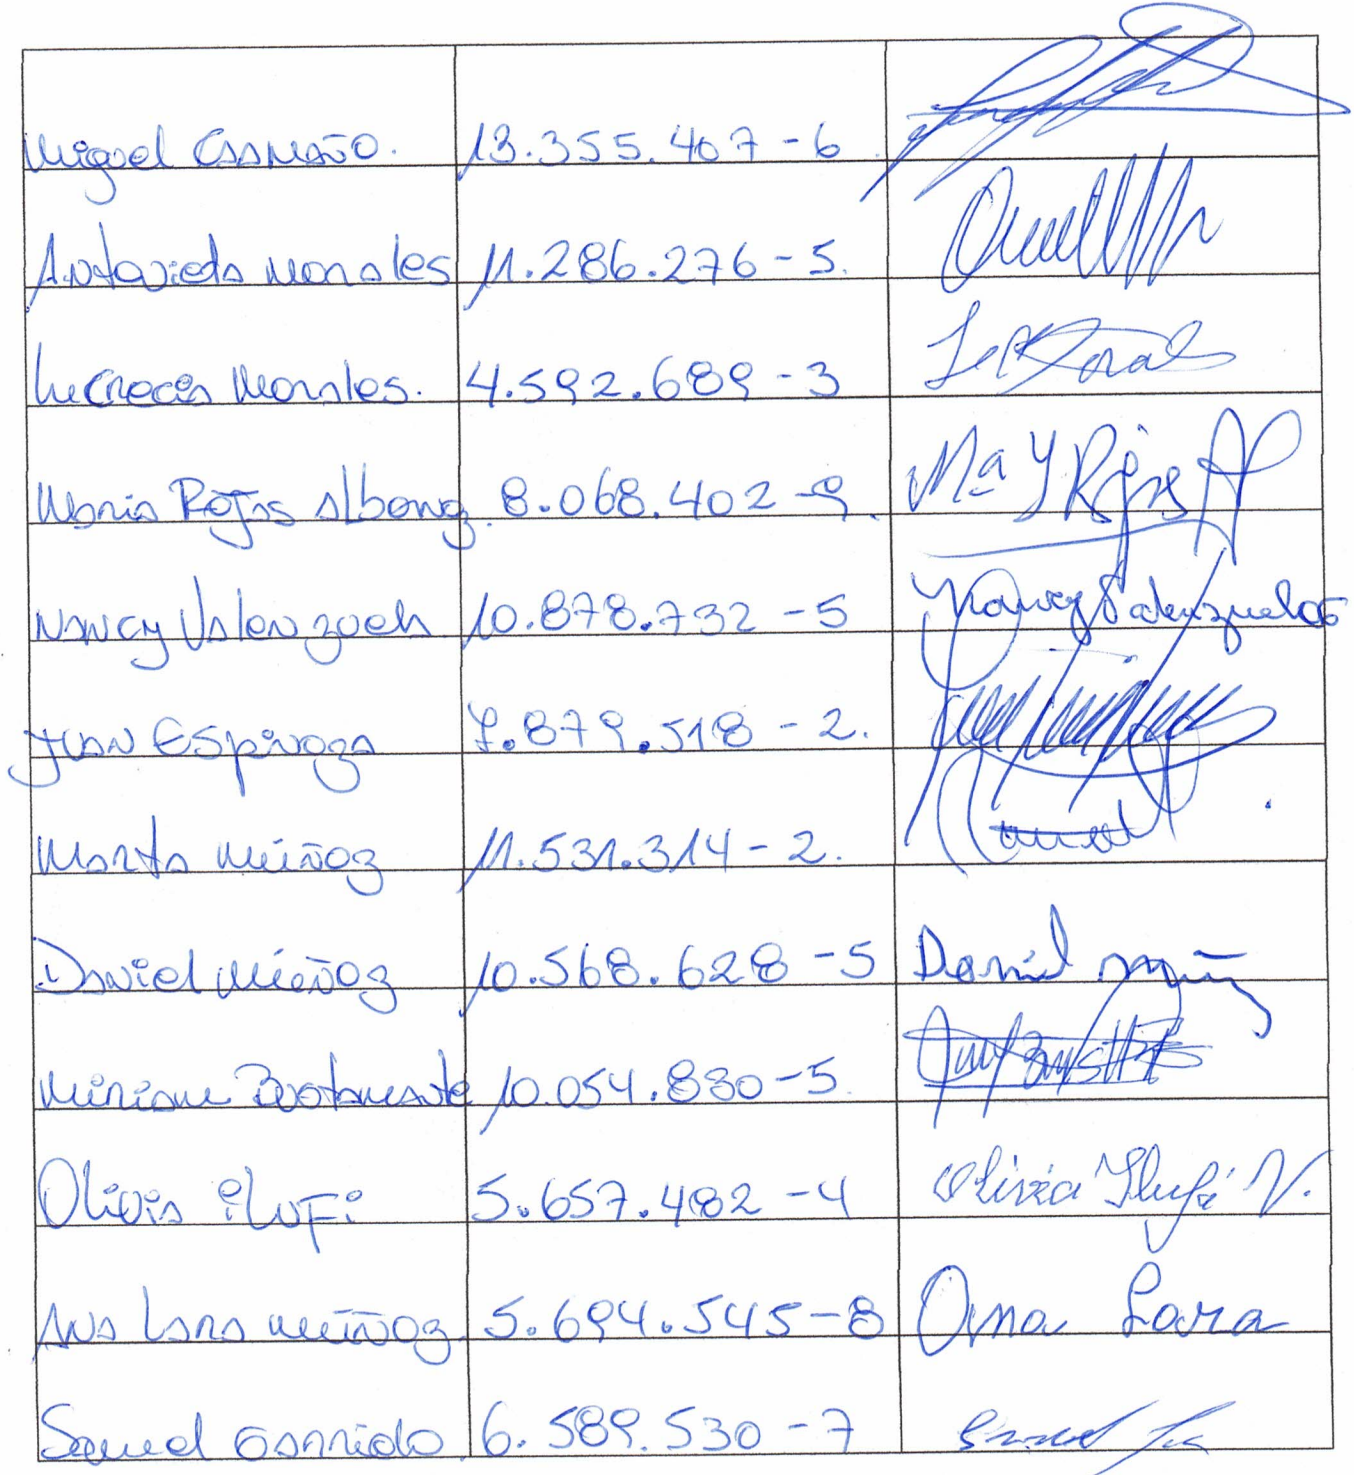 Miguel Caamaño. 13.355.407-6
Antonieta Morales 11.286.276-5.
Lucrecia Morales. 4.592.689-3
Maria Rojas Albornoz. 8.068.402-9. Mª Y Rojas A
Nancy Valenzuela 10.878.732-5 Nancy Valenzuela
Juan Espinoza 7.879.518-2.
Marta Muñoz 11.531.314-2.
Daniel Muñoz 10.568.628-5 Daniel Muñoz
Miriam Bustamante 10.054.830-5.
Olivia iLUFi 5.657.482-4 Olivia Ilufi V.
Ana Lara Muñoz. 5.694.545-8 Ana Lara
Samuel Garrido 6.589.530-7